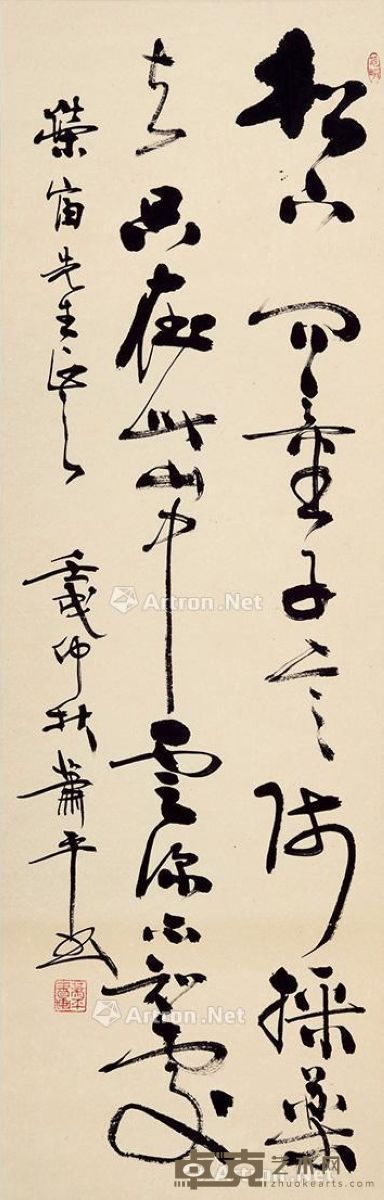 松下問童子言師採藥
去只在此山中雲深不知處
榮宙先生正之 壬戌仲秋蕭平書
Artron.Net
Artron.Net
Artron.Net
Artron.Net
卓克艺术网
zhuokearts.com